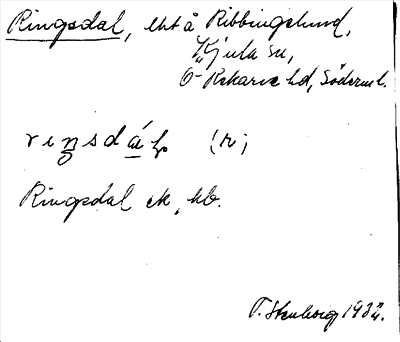 Ringsdal, lht å Ribbingslund,
Kjula sn,
Ö-Rekarne hd, Söderml.
(n)
Ringsdal ek, hb.
T. Stenborg 1932.